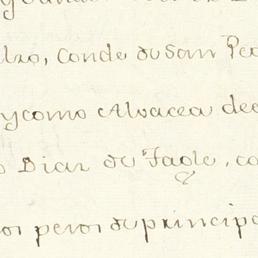 lzo, Conde de San Pe
y como Alvacea de
Diaz de Tagle, co
os pesos de principa